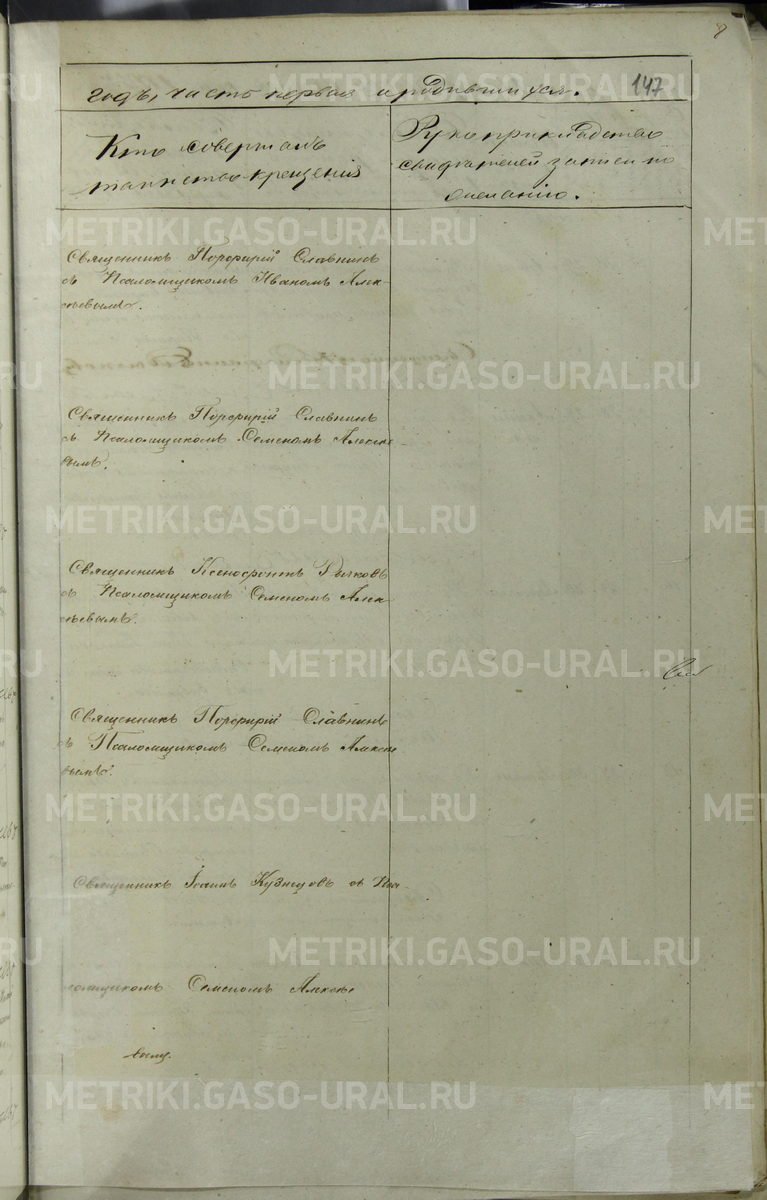 147
годъ, часть первая о родившихся.
Кто совершалъ
таинство крещенія
Рукоприкладство
свидѣтелей записи по
желанію.
Священникъ Порфирій Славнинъ
съ Псаломщикомъ Иваномъ Алек-
сѣевымъ.
Священникъ Порфирій Славнинъ
съ Псаломщикомъ Семеномъ Алексѣ
вымъ.
Священникъ Ксенофонтъ Рычковъ
съ Псаломщикомъ Семеномъ Алек-
сѣевымъ.
Священникъ Порфирій Славнинъ
съ Псаломщикомъ Семеномъ Алексѣ
вымъ.
Священникъ Іоаннъ Кузнецовъ съ Пса-
ломщикомъ Семеномъ Алексѣе
METRIKI.GASO-URAL.RU